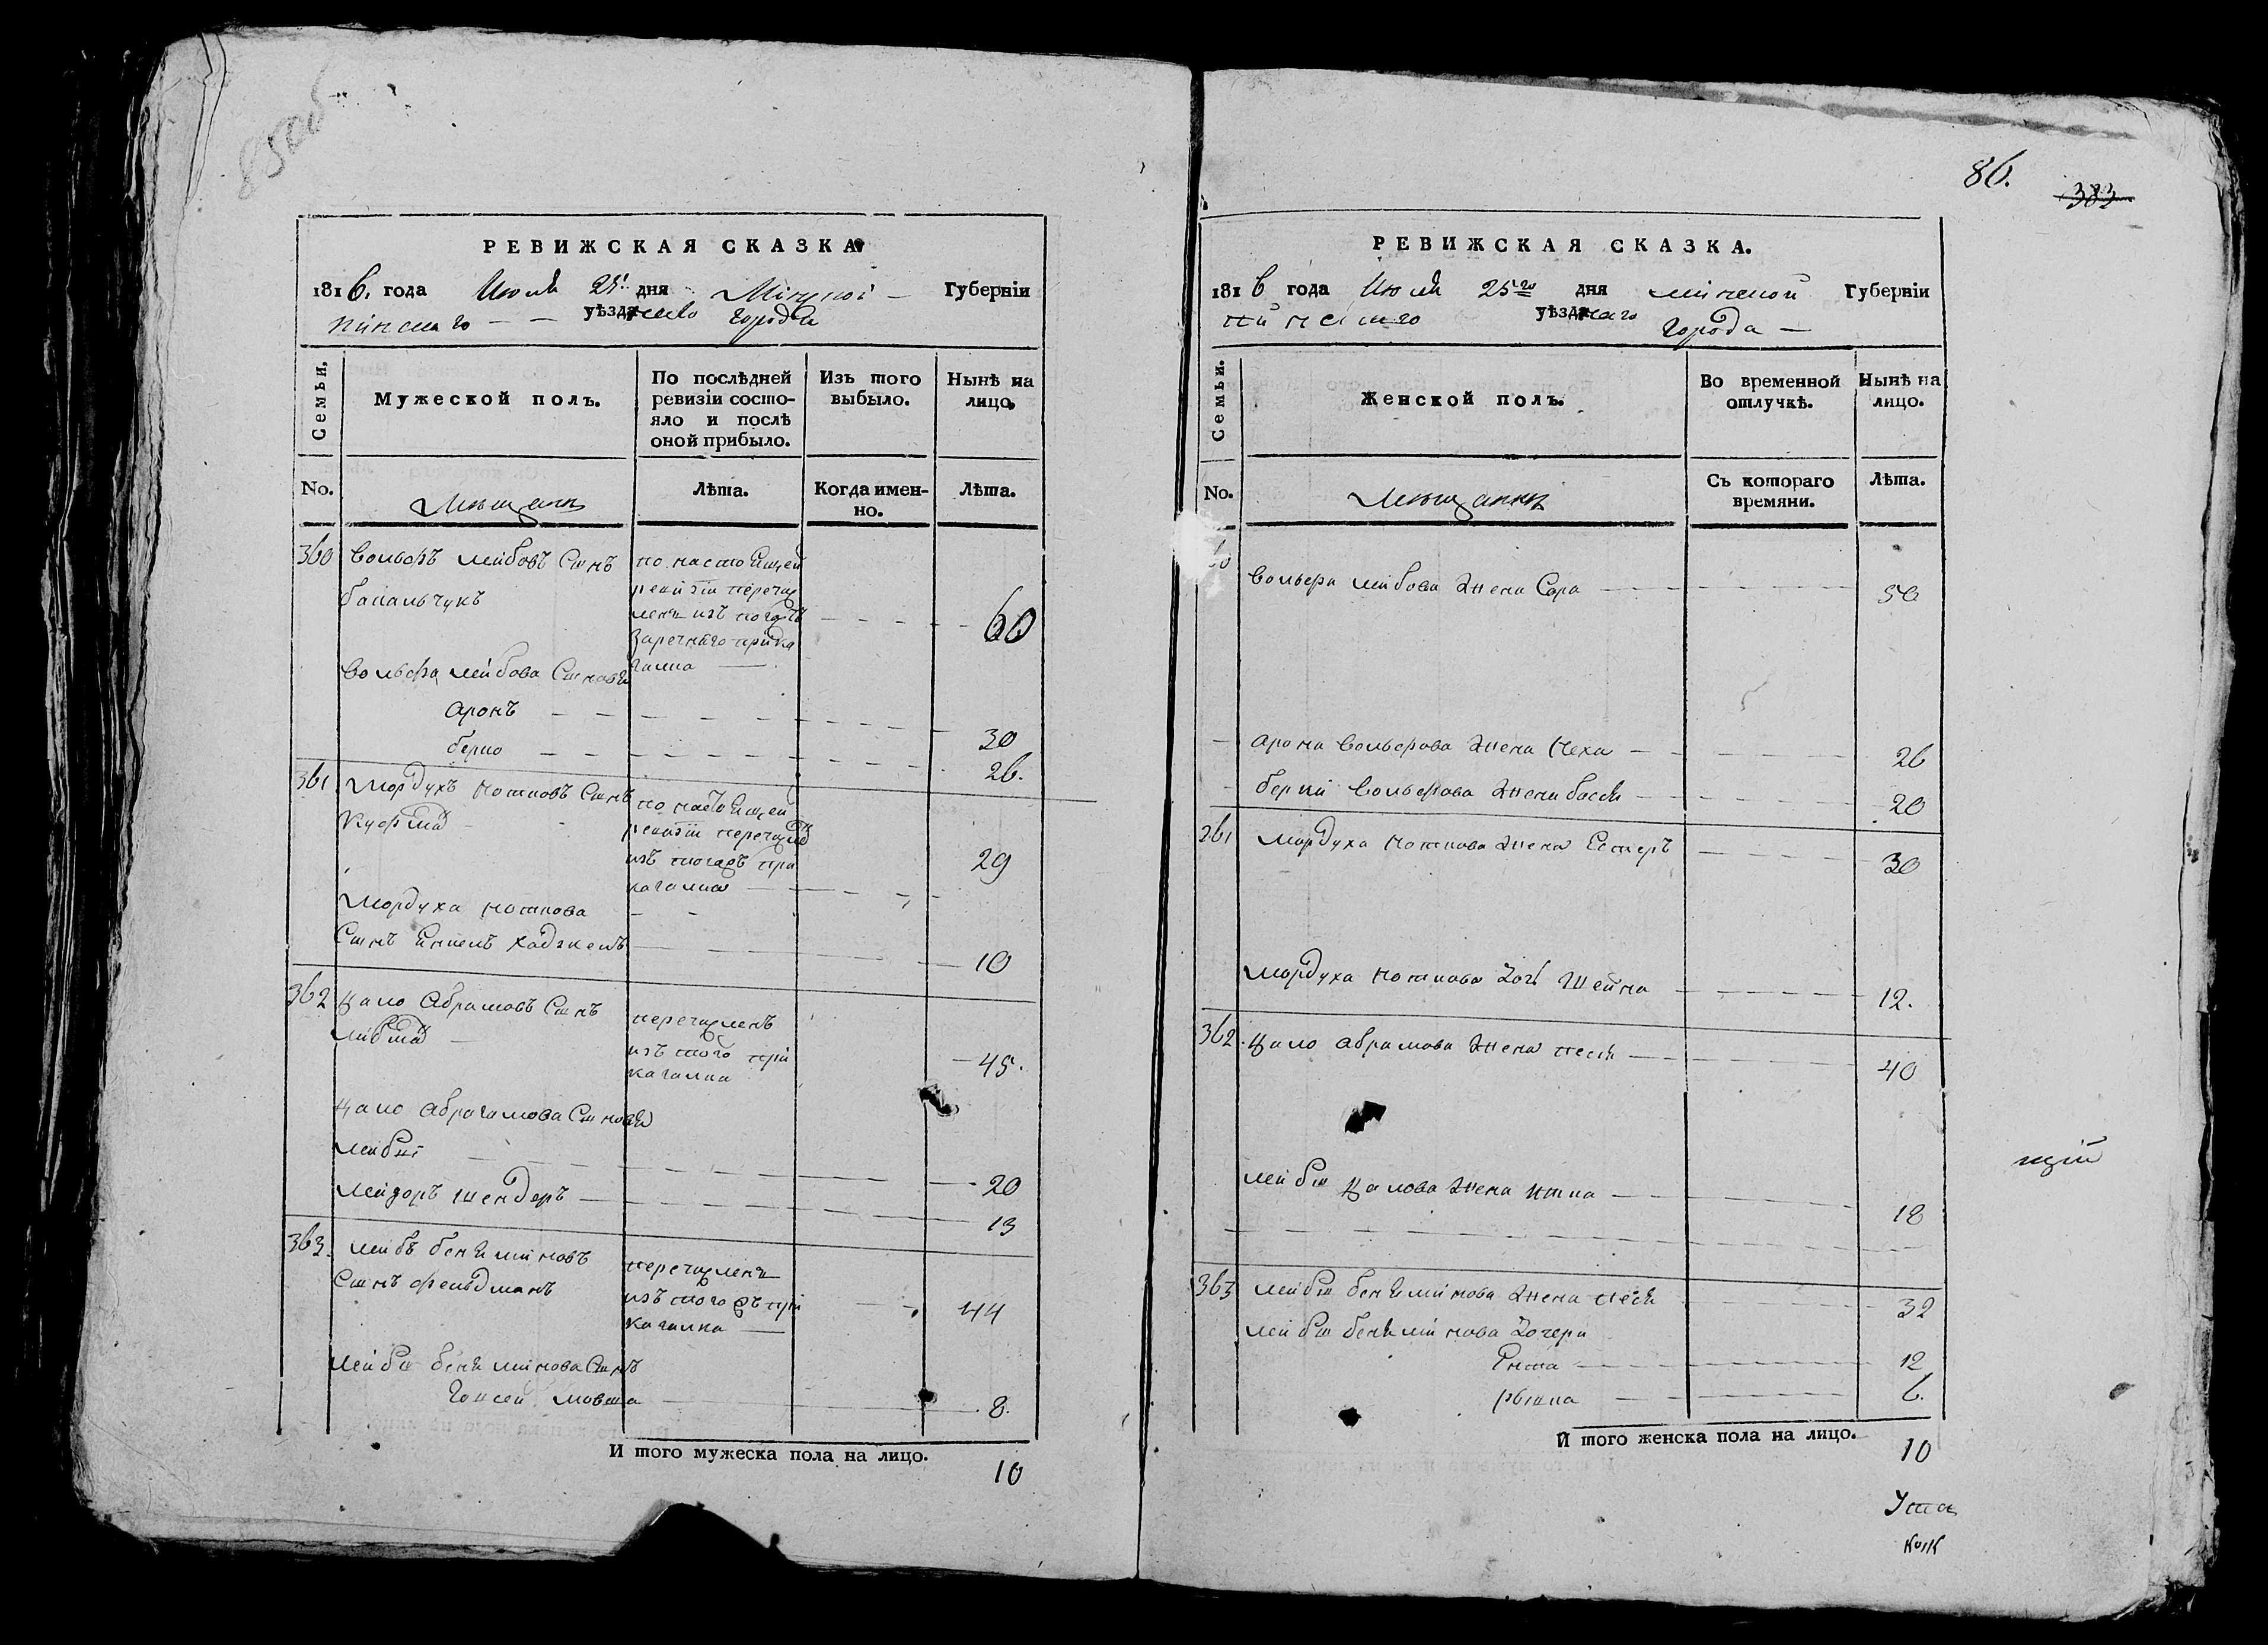 85 об
РЕВИЖСКАЯ СКАЗКА
1816. года Июля 25 дня Минской Губерніи
пинскаго уѣзднаго города
Семьи.
Мужеской полъ.
По послѣдней ревизіи состояло и послѣ оной прибыло.
Изъ того выбыло.
Нынѣ на лицо.
No.
Мещанъ
Лѣта.
Когда именно.
Лѣта.
360 Вольфъ лейбовъ Сынъ
по настоящей
ревизіи перечи
лснъ изъ
заречнаго прика
галка
60
Вольфа лейбова Сыновья
аронъ 30
берко 26.
361 Мордухъ нотковъ Сынъ
по настоящей
ревизіи перечис
изъ при
кагалка
29
Мордуханоткова
Сынъ
10
362 Цало абрамовъ Сынъ
перечисленъ
изъ того при
кагалка
45.
Цало абрагамова Сыновья
лейба 20
лейзоръ шендеръ 13
363. лейбъ беняминовъ
Сынъ фельдманъ
перечисленъ
изъ при
кагалка
44
лейбы беняминова Сынъ
мовша 8.
И того мужеска пола на лицо.
10
86.
383
РЕВИЖСКАЯ СКАЗКА.
1816 года Июля 25го дня минской Губерніи
пинскаго уѣзднаго города
Семьи.
Женской полъ.
Во временной отлучкѣ.
Нынѣ на лицо.
No.
Мещанки
Съ котораго времяни.
Лѣта.
Вольфа лейбова Жена Сора 50
арона Вольфова Жена 26
берки Вольфова Жена бася 20
361 мордуха ноткова Жена Естеръ 30
мордуха ноткова Дочь Шейна 12.
362. Цало абрамова Жена песя 40
лейбы Цалова Жена итка 18
363 лейбы беняминова Жена песя 32
лейбы беняминова Дочери
12
рывка 6.
И того женска пола на лицо.
10
щій